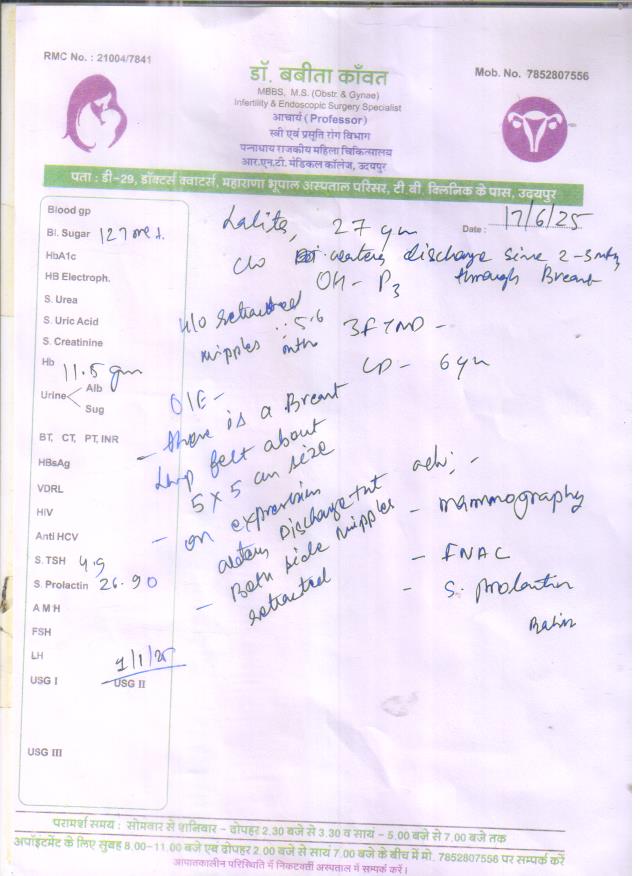 RMC No. : 21004/7841
डॉ. बबीता काँवत
Mob. No. 7852807556
MBBS, M.S. (Obstr. & Gynae)
Infertility & Endoscopic Surgery Specialist
आचार्य (Professor)
स्त्री एवं प्रसूति रोग विभाग
पन्नाधाय राजकीय महिला चिकित्सालय
आर.एन.टी. मेडिकल कॉलेज, उदयपुर
पता : डी-29, डॉक्टर्स क्वाटर्स, महाराणा भूपाल अस्पताल परिसर, टी बी. क्लिनिक के पास, उदयपुर
Blood gp
Bl. Sugar 127
HbA1c
HB Electroph.
S. Urea
S. Uric Acid
S. Creatinine
Hb 11.5 gm
Urine Alb
Sug
BT, CT, PT, INR
HBsAg
VDRL
HIV
Anti HCV
S. TSH 4.9
S. Prolactin 26.90
A M H
FSH
LH
1/1/25
USG I USG II
USG III
Lalita, 27 yr
Date : 17/6/25
c/o watery discharge since 2-3
through Breast
OH - P3
H/O retracted
nipples
3FTND -
LD - 6 yr
O/E -
- there is a Breast
lump felt about
5 x 5 cm size
- on expression
watery Discharge
- Both side nipples
retracted
adv; -
- Mammography
- FNAC
- S. Prolactin
परामर्श समय : सोमवार से शनिवार - दोपहर 2.30 बजे से 3.30 व सायं - 5.00 बजे से 7.00 बजे तक
अपॉइंटमेंट के लिए सुबह 8.00-11.00 बजे एवं दोपहर 2.00 बजे से सायं 7.00 बजे के बीच में मो. 7852807556 पर सम्पर्क करें
आपातकालीन परिस्थिति में निकटवर्ती अस्पताल में सम्पर्क करें।